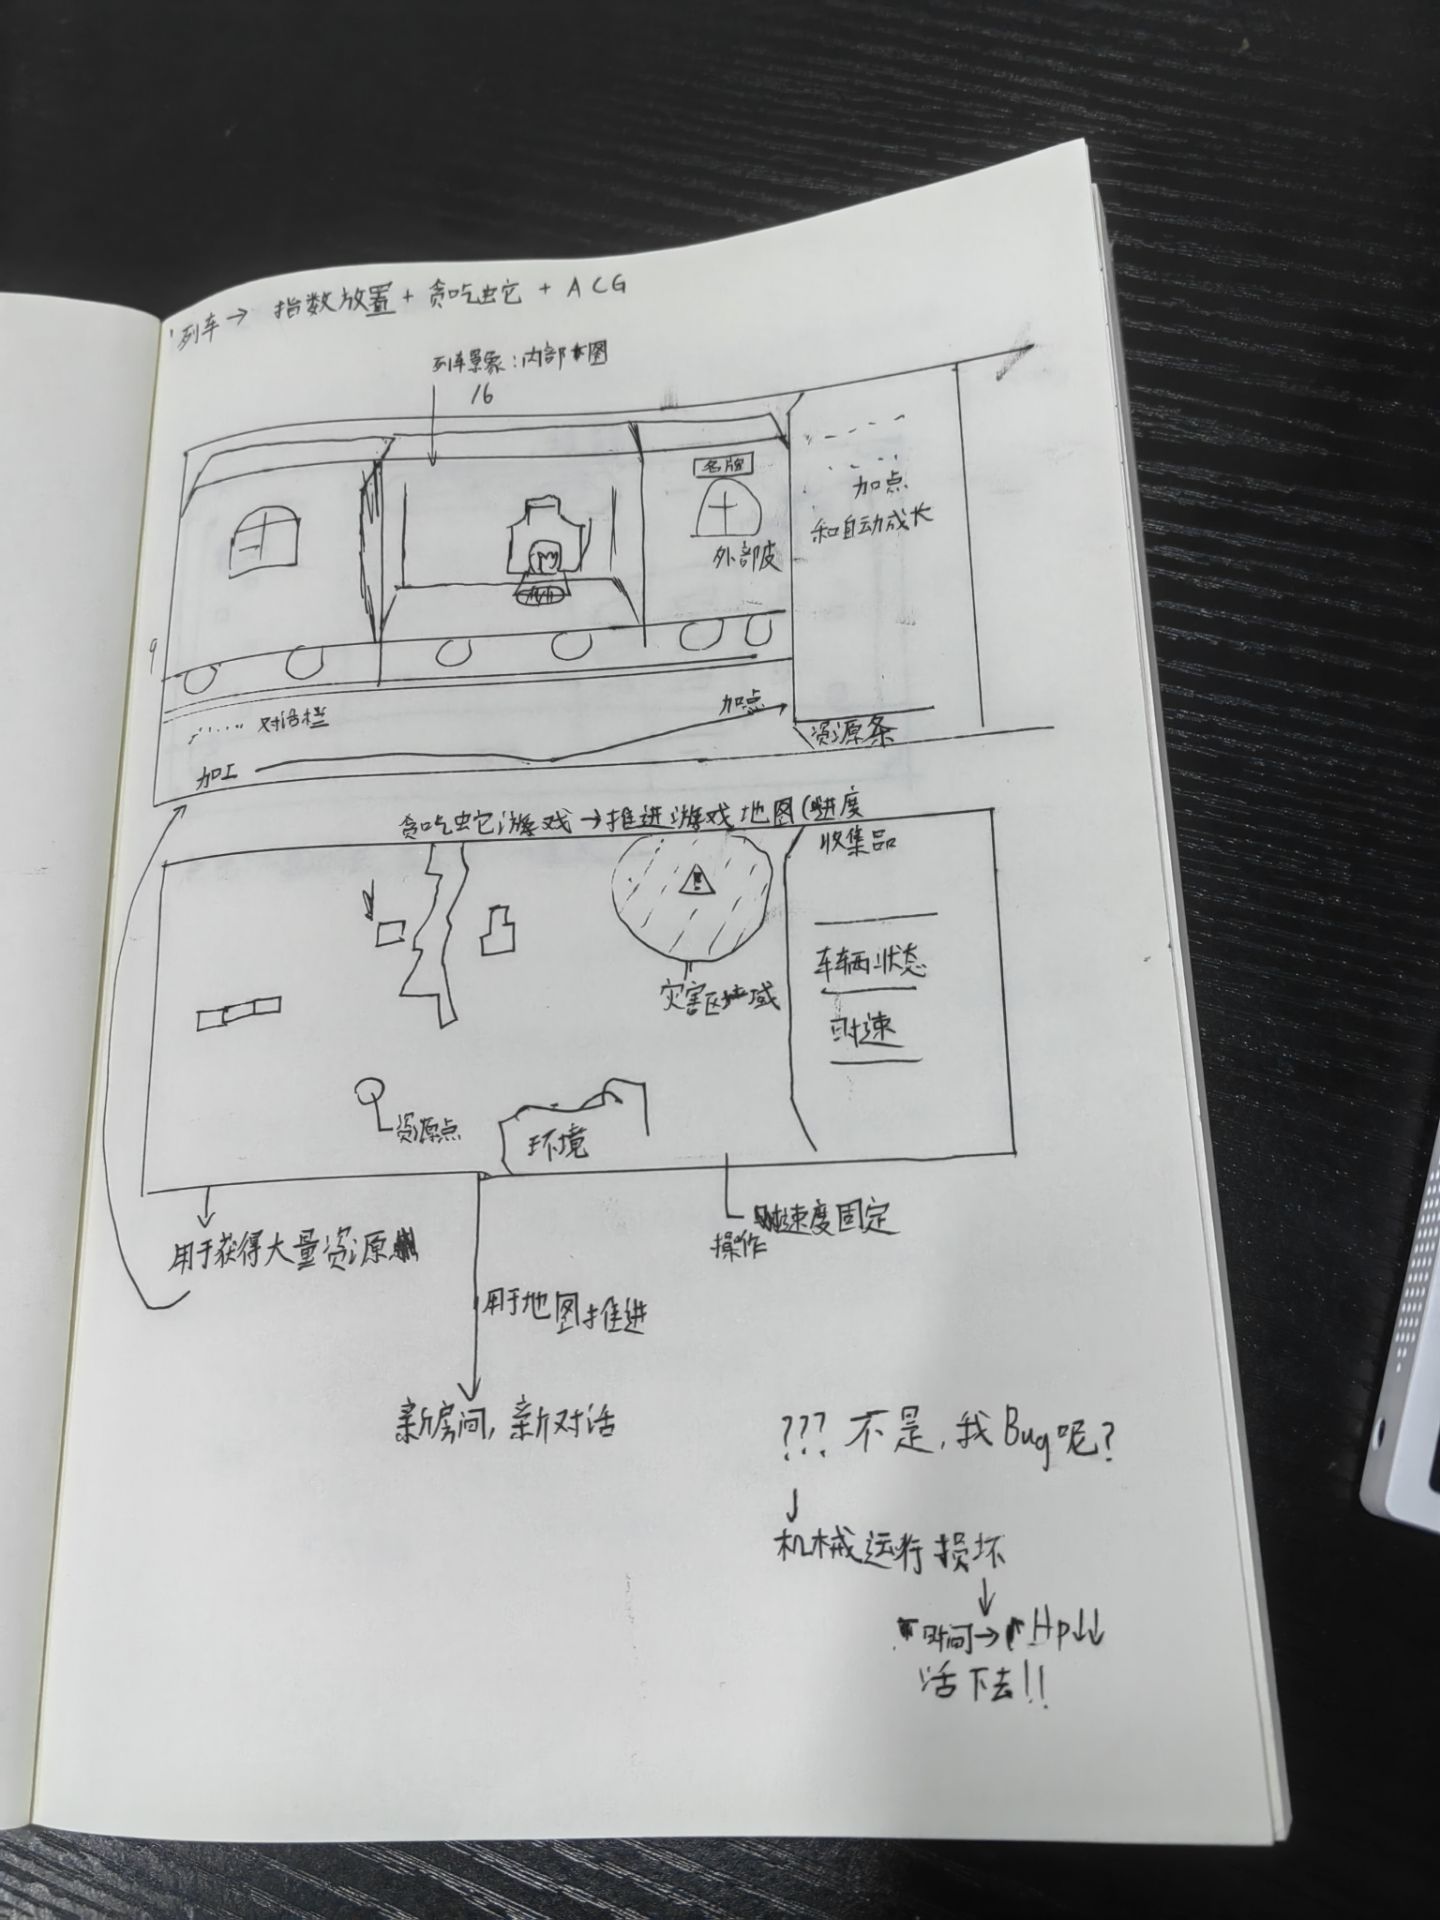 列车→ 指数放置+贪吃蛇+ACG
列车景象:内部 图
16
名牌
外部皮
加点
和自动成长
9
对话栏
加点
资源条
加工
贪吃蛇游戏→推进游戏地图(进度
收集品
灾害区域
车辆状态
时速
资源点
环境
用于获得大量资源
速度固定
操作
用于地图推进
新房间,新对话
??? 不是,我Bug呢?
机械运行损坏
时间→ Hp↓↓
活下去!!